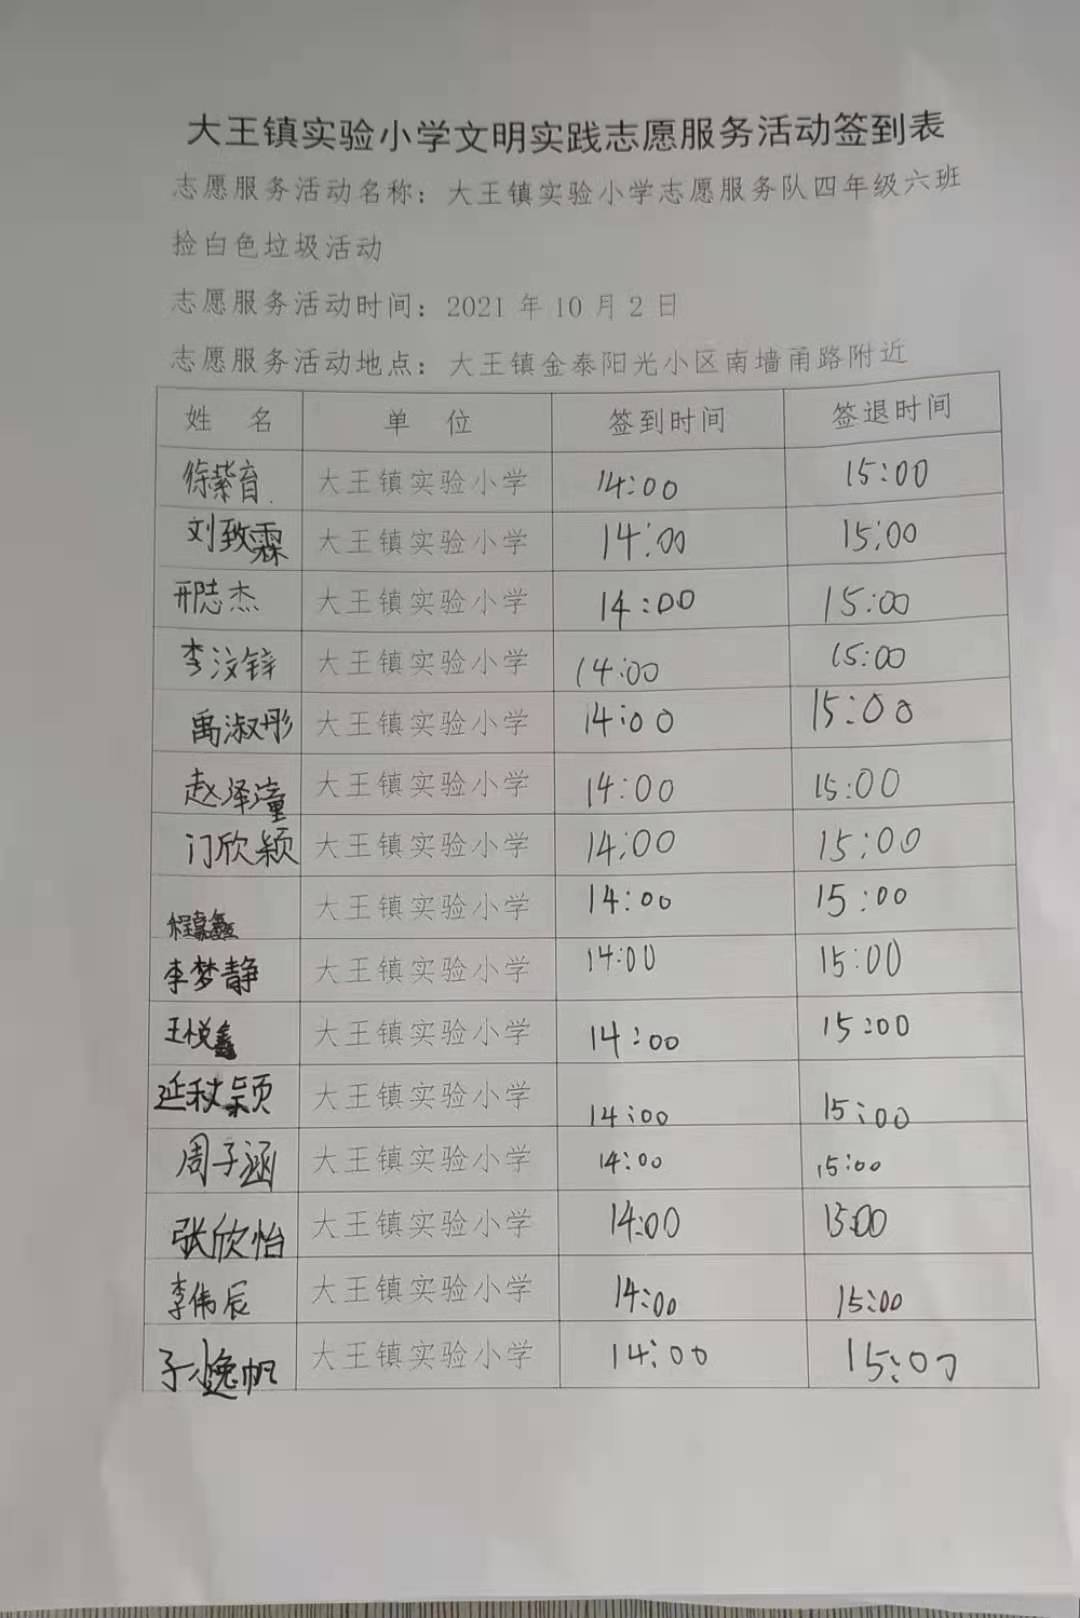 大王镇实验小学文明实践志愿服务活动签到表
志愿服务活动名称：大王镇实验小学志愿服务队四年级六班
捡白色垃圾活动
志愿服务活动时间：2021 年 10 月 2 日
志愿服务活动地点：大王镇金泰阳光小区南墙甬路附近
姓 名 单 位 签到时间 签退时间
徐紫育 大王镇实验小学 14:00 15:00
刘致霖 大王镇实验小学 14:00 15:00
邢志杰 大王镇实验小学 14:00 15:00
李汶锌 大王镇实验小学 14:00 15:00
禹淑彤 大王镇实验小学 14:00 15:00
赵泽潼 大王镇实验小学 14:00 15:00
门欣颖 大王镇实验小学 14:00 15:00
大王镇实验小学 14:00 15:00
李梦静 大王镇实验小学 14:00 15:00
王悦鑫 大王镇实验小学 14:00 15:00
延秋颖 大王镇实验小学 14:00 15:00
周子涵 大王镇实验小学 14:00 15:00
张欣怡 大王镇实验小学 14:00 15:00
李伟辰 大王镇实验小学 14:00 15:00
大王镇实验小学 14:00 15:00